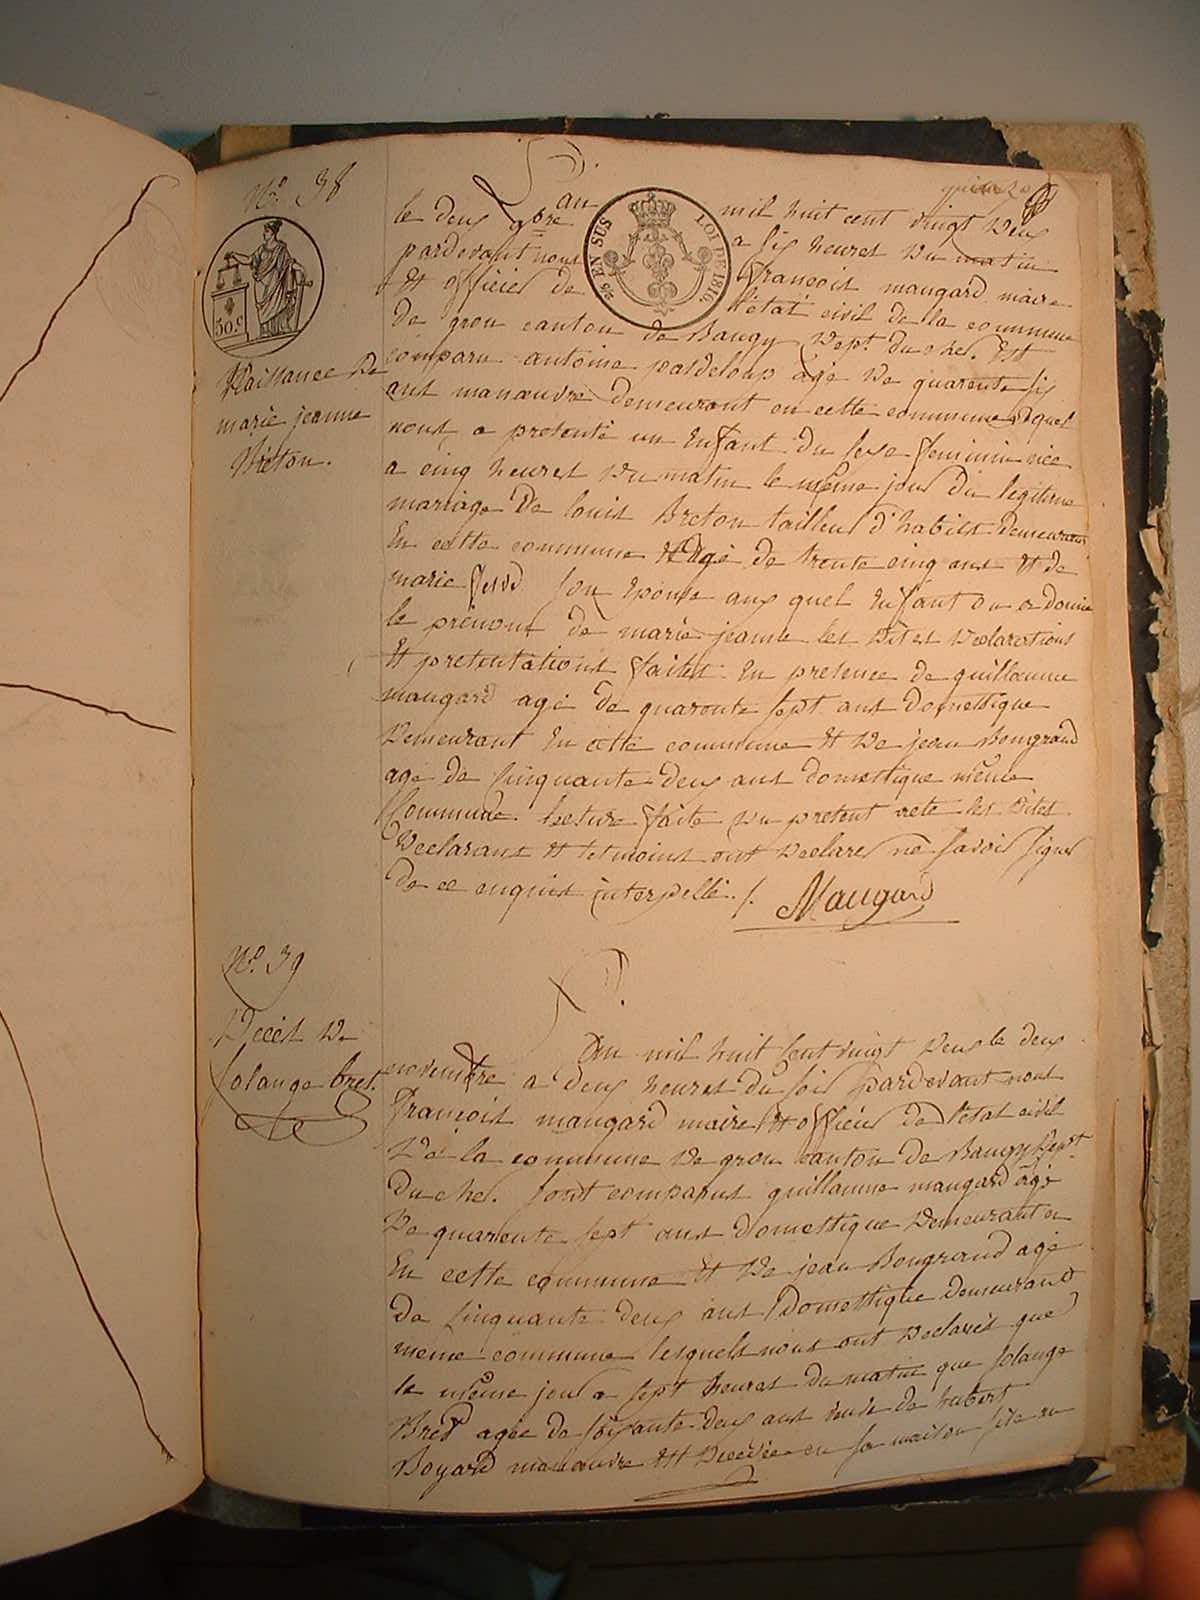 quinze
N°. 38
L'an mil huit cent vingt deux
le deux 9bre a six heures du matin
pardevant nous françois maugard maire
et officier de l'état civil de la commune
de grou canton de Baugy Dept. du cher. Est
comparu antoine pasdeloup agé de quarente six
ans manœuvre demeurant en cette commune lequel
nous a presenté un Enfant du sexe feminin née
a cinq heures du matin le même jour du legitime
mariage de louis Breton tailleur d'habits demeurant
En cette commune Agé de trente cinq ans et de
marie son Epouse auquel Enfant on a donné
le prénom de marie jeanne les dites declarations
Et presentations faites En presence de guillaume
maugard agé de quarente sept ans domestique
Demeurant En cette commune Et De jean Bougrand
agé de Cinquante-deux ans domestique même
Commune. lecture faite du present acte les dites
Declarant et tesmoins ont Declarer ne savoir signer
de ce enquis interpellé./. Maugard
LOI DE 1816.
EN SUS
50.c
Naissance De
marie jeanne
Breton.
N°. 39
Deces De
solange bret.
L'An mil huit Cent vingt deux le deux
novembre a deux heures du soir pardevant nous
françois maugard maire Et officier de l'etat civil
De la commune de grou canton de Baugy Dept.
du cher. sont comparus guillaume maugard agé
De quarente sept ans domestique Demeurant en
En cette commune Et De jean Bougrand agé
de Cinquante-deux ans Domestique demeurand
meme commune lesquels nous ont Declarés que
le même jour a sept heures du matin que solange
Bret agée de soixante-deux ans veuve de hubert
Boyard manœuvre est Decedée en sa maison size au